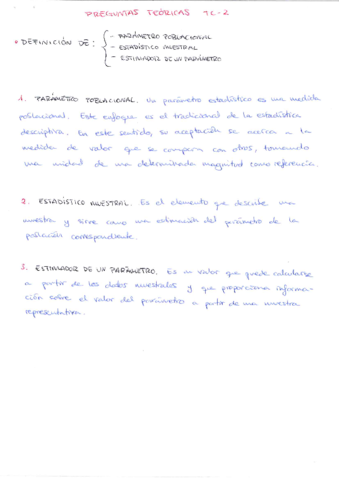 PREGUNTAS TEÓRICAS TC-2
* DEFINICIÓN DE: - PARÁMETRO POBLACIONAL
- ESTADÍSTICO MUESTRAL
- ESTIMADOR DE UN PARÁMETRO
1. PARÁMETRO POBLACIONAL. Un parámetro estadístico es una medida
poblacional. Este enfoque es el tradicional de la estadística
descriptiva. En este sentido, su aceptación se acerca a la
medida de valor que se compara con otros, tomando
una unidad de una determinada magnitud como referencia.
2. ESTADÍSTICO MUESTRAL. Es el elemento que describe una
muestra y sirve como una estimación del parámetro de la
población correspondiente.
3. ESTIMADOR DE UN PARÁMETRO. Es un valor que puede calcularse
a partir de los datos muestrales y que proporciona informa-
ción sobre el valor del parámetro a partir de una muestra
representativa.